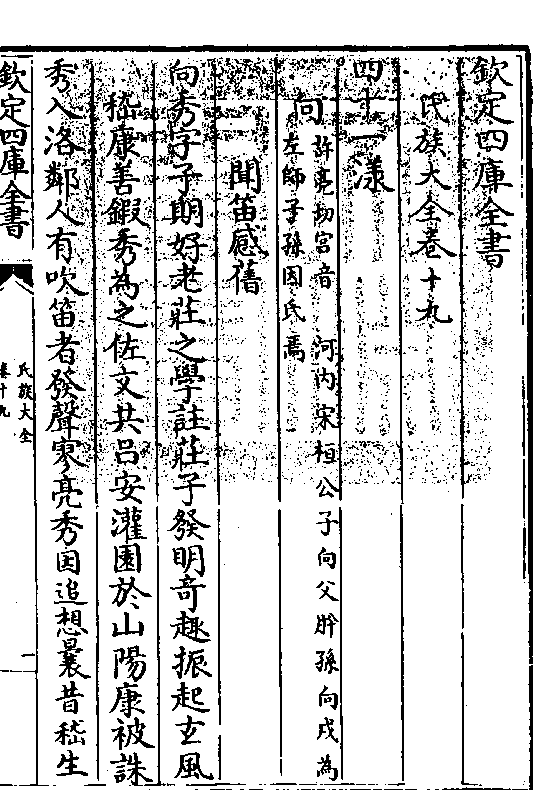 欽定四庫全書
氏族大全卷十九
四十一漾
向許亮切宮音　河内宋桓公子向父肸孫向戌為
左師子孫因氏焉
聞笛感舊
向秀字子期好老莊之學註莊子發明奇趣振起玄風
嵇康善鍛秀為之佐又共吕安灌園於山陽康被誅
秀入洛鄰人有吹笛者發聲寥亮秀因追想曩昔嵇生
欽定四庫全書
氏族大全
卷十九
一